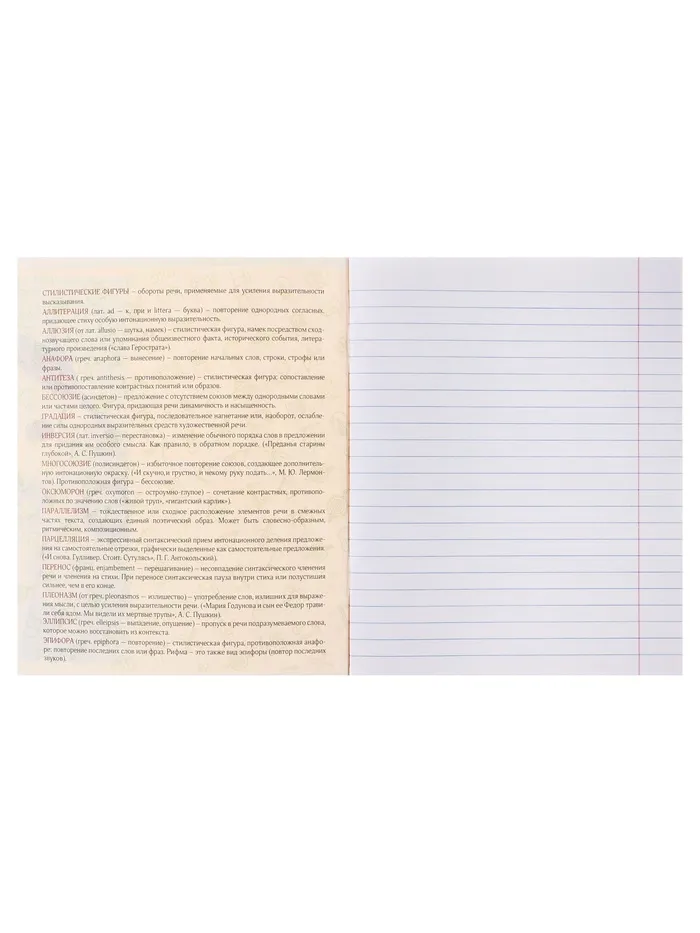 СТИЛИСТИЧЕСКИЕ ФИГУРЫ – обороты речи, применяемые для усиления выразительности
высказывания.
АЛЛИТЕРАЦИЯ (лат. ad — к, при и littera — буква) – повторение однородных согласных,
придающее стиху особую интонационную выразительность.
АЛЛЮЗИЯ (от лат. allusio — шутка, намек) – стилистическая фигура, намек посредством сход-
нозвучащего слова или упоминания общеизвестного факта, исторического события, литера-
турного произведения («слава Герострата»).
АНАФОРА (греч. anaphora — вынесение) – повторение начальных слов, строки, строфы или
фразы.
АНТИТЕЗА ( греч. antithesis — противоположение) – стилистическая фигура; сопоставление
или противопоставление контрастных понятий или образов.
БЕССОЮЗИЕ (асиндетон) – предложение с отсутствием союзов между однородными словами
или частями целого. Фигура, придающая речи динамичность и насыщенность.
ГРАДАЦИЯ – стилистическая фигура, последовательное нагнетание или, наоборот, ослабле-
ние силы однородных выразительных средств художественной речи.
ИНВЕРСИЯ (лат. inversio — перестановка) – изменение обычного порядка слов в предложении
для придания им особого смысла. Как правило, в обратном порядке. («Преданья старины
глубокой», А. С. Пушкин).
МНОГОСОЮЗИЕ (полисиндетон) – избыточное повторение союзов, создающее дополнитель-
ную интонационную окраску. («И скучно, и грустно, и некому руку подать...», М. Ю. Лермон-
тов). Противоположная фигура – бессоюзие.
ОКСЮМОРОН (греч. oxymoron — остроумно-глупое) – сочетание контрастных, противопо-
ложных по значению слов («живой труп», «гигантский карлик»).
ПАРАЛЛЕЛИЗМ – тождественное или сходное расположение элементов речи в смежных
частях текста, создающих единый поэтический образ. Может быть словесно-образным,
ритмическим, композиционным.
ПАРЦЕЛЛЯЦИЯ – экспрессивный синтаксический прием интонационного деления предложе-
ния на самостоятельные отрезки, графически выделенные как самостоятельные предложения
(«И снова. Гулливер. Стоит. Сутулясь», П. Г. Антокольский).
ПЕРЕНОС (франц. enjambement — перешагивание) – несовпадение синтаксического членения
речи и членения на стихи. При переносе синтаксическая пауза внутри стиха или полустишия
сильнее, чем в его конце.
ПЛЕОНАЗМ (от греч. pleonasmos — излишество) – употребление слов, излишних для выраже-
ния мысли, с целью усиления выразительности речи. («Мария Годунова и сын ее Федор трави-
ли себя ядом. Мы видели их мертвые трупы», А. С. Пушкин).
ЭЛЛИПСИС (греч. elleipsis — выпадение, опущение) – пропуск в речи подразумеваемого слова,
которое можно восстановить из контекста.
ЭПИФОРА (греч. epiphora — повторение) – стилистическая фигура, противоположная анафо-
ре: повторение последних слов или фраз. Рифма – это также вид эпифоры (повтор последних
звуков).